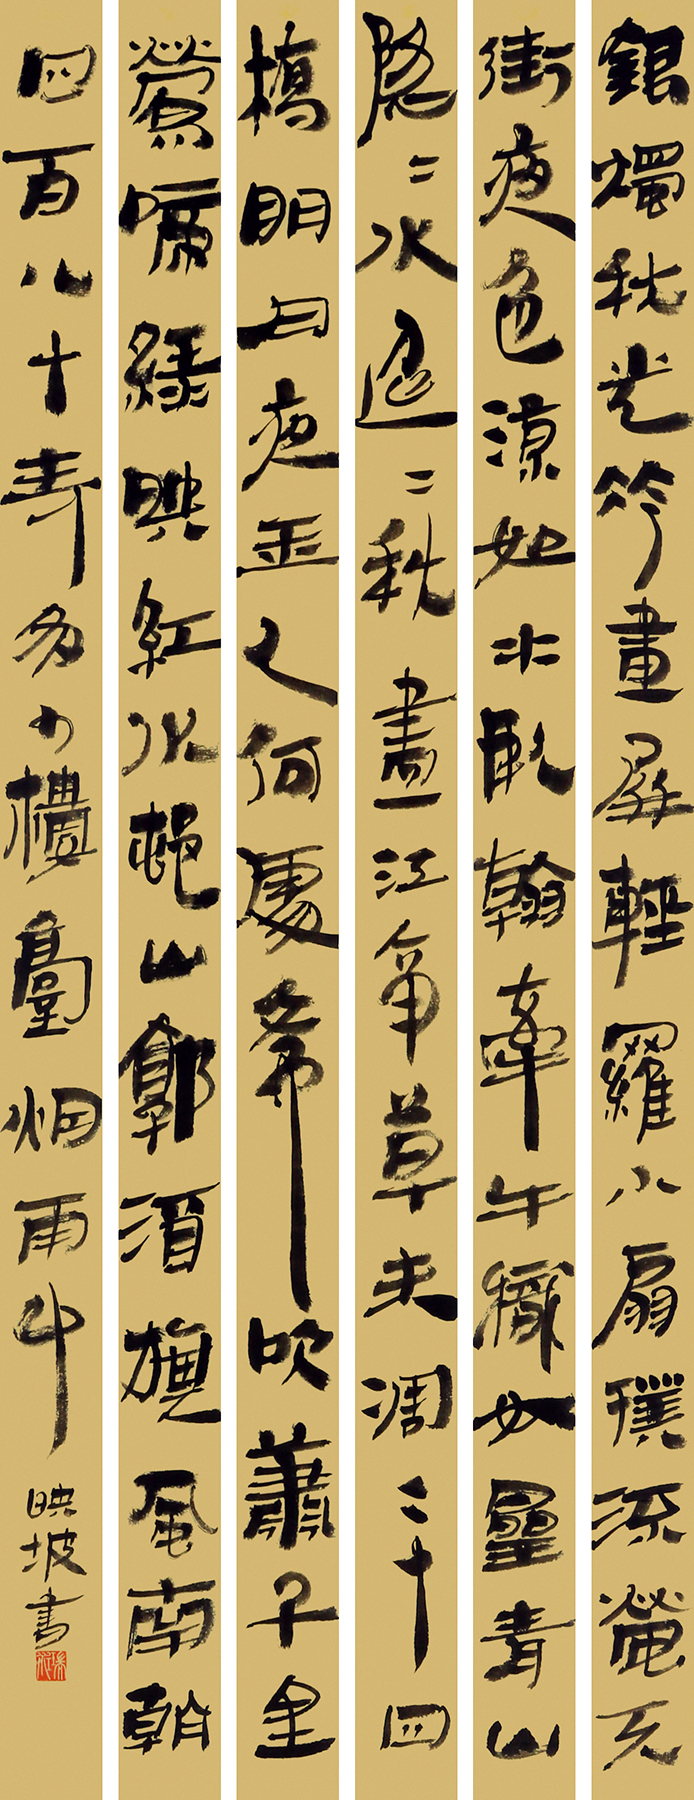 銀燭秋光冷畫屏輕羅小扇撲流螢天
街夜色涼如水臥看牽牛織女星青山
隱二水迢二秋盡江南草未凋二十四
橋明月夜玉人何處教吹簫千里
鶯啼綠映紅水邨山郭酒旗風南朝
四百八十寺多少樓臺烟雨中
映坡書